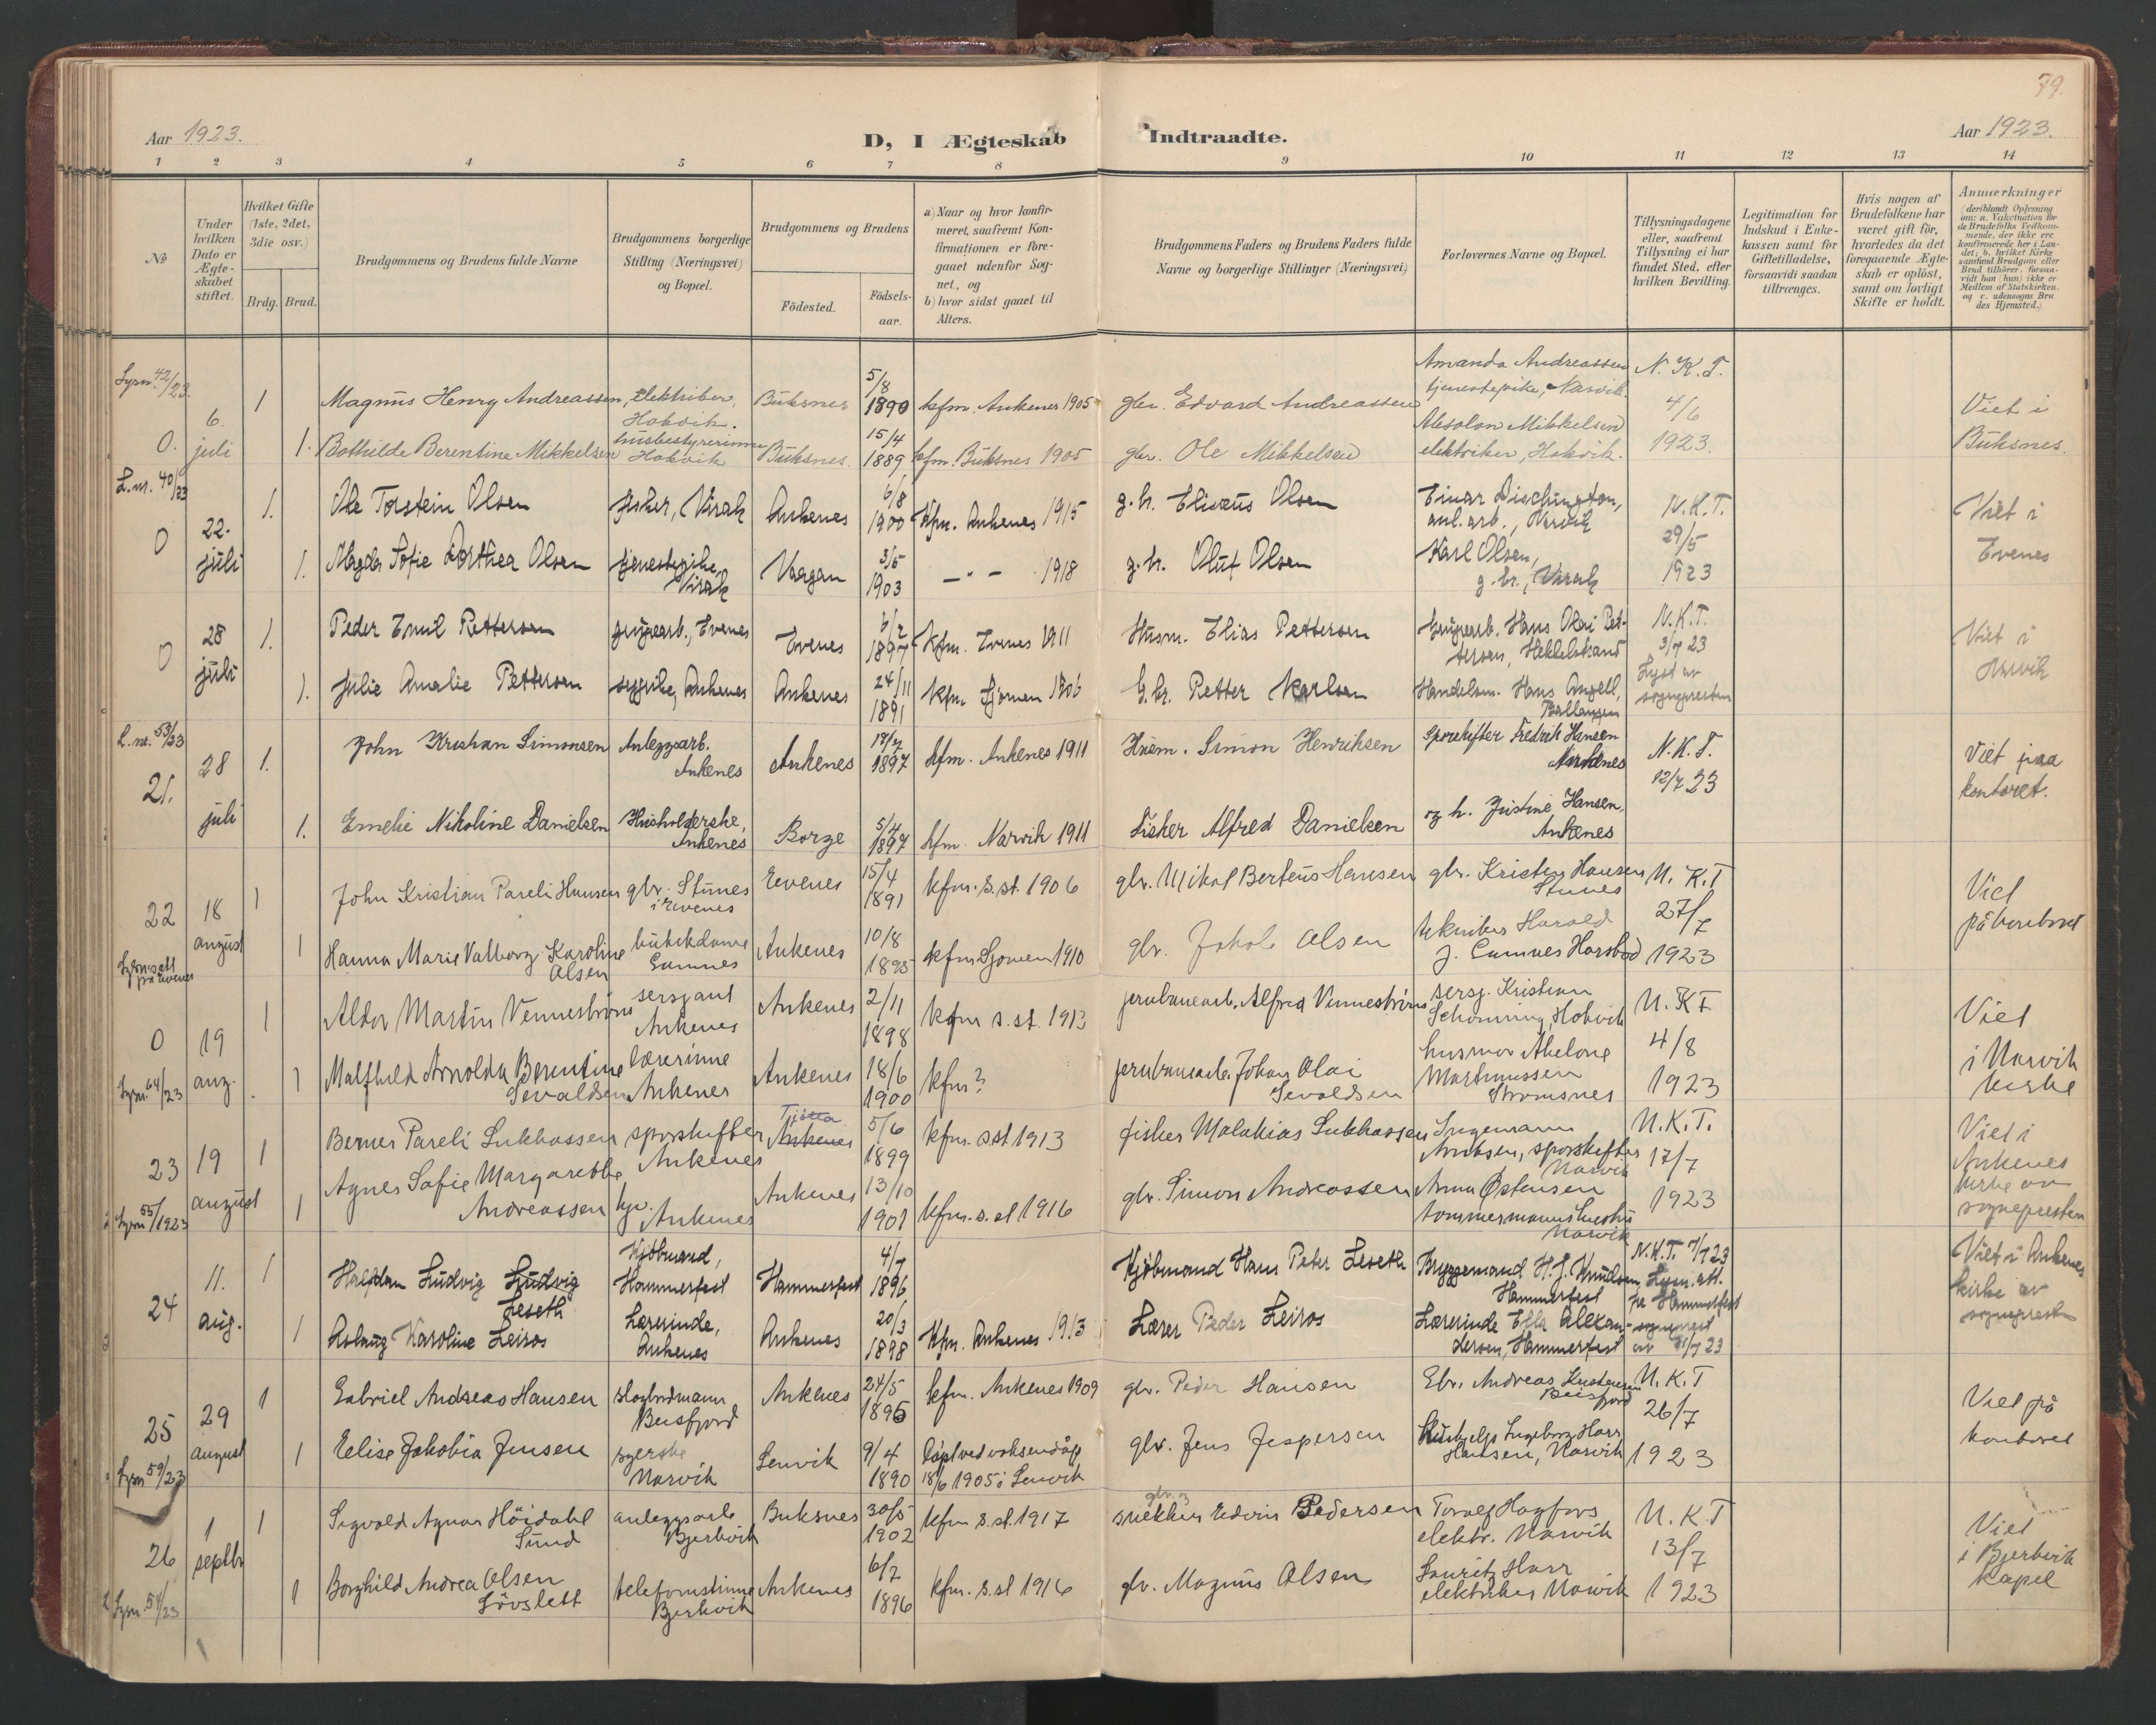 79.
Aar 1923.
D, I Ægteskab Indtraadte.
Aar 1923.
1 2 3 4 5 6 7 8 9 10 11 12 13 14
No
Under hvilken Dato er Ægteskabet stiftet.
Hvilket Gifte (1ste, 2det, 3die osv.)
Brdg. Brud.
Brudgommens og Brudens fulde Navne
Brudgommens borgerlige Stilling (Næringsvei) og Bopæl.
Brudgommens og Brudens
Födested. Födsels-aar.
a) Naar og hvor konfirmeret, saafremt Konfirmationen er foregaaet udenfor Sognet, og
b) hvor sidst gaaet til Alters.
Brudgommens Faders og Brudens Faders fulde Navne og borgerlige Stillinger (Næringsvei)
Forlovernes Navne og Bopæl.
Tillysningsdagene eller, saafremt Tillysning ei har fundet Sted, efter hvilken Bevilling.
Legitimation for Indskud i Enkekassen samt for Giftetilladelse, forsaavidt saadan tiltrænges.
Hvis nogen af Brudefolkene har været gift för, hvorledes da det foregaaende Ægteskab er oplöst, samt om lovligt Skifte er holdt.
Anmærkninger (deriblandt Oplysning om: a. Vakcination for de Brudefolks Vedkommende, der ikke ere konfirmerede her i Landet; b. hvilket Kirkesamfund Brudgom eller Brud tilhörer, forsaavidt han (hun) ikke er Medlem af Statskirken, og c. udensogns Brudes Hjemsted.)
Lysn. 42/23. 0. 6. juli
1 Magnus Henry Andreassen, elektriker, Hokvik. Buksnes 5/8 1890 kfm. Ankenes 1905 gbr. Edvard Andreassen Amanda Andreassen tjenestepike, Narvik. N. K. T.
1. Bothilde Berentine Mikkelsen husbestyrerinne Hokvik Buksnes. 15/4 1889 kfm. Buksnes 1905 gbr. Ole Mikkelsen Absolon Mikkelsen elektriker, Hokvik. 4/6 1923. Viet i Buksnes.
L. nr. 40/23 0 22. juli
1. Ole Torstein Olsen fisker, Virak Ankenes 6/8 1900 Kfm. Ankenes 1915 g.br. Eliseus Olsen Einar Dischington, anl. arb., Narvik N.K.T.
1. Magda Sofie Dorthea Olsen tjenestepike, Virak Vaagan 3/5 1903 — " — 1918 g.br. Oluf Olsen Karl Olsen, g.br., Virak 29/5 1923 Viet i Evenes
0 28 juli
1. Peder Emil Pettersen grubearb., Evenes Evenes 6/2 1897 Kfm. Evenes 1911 Husm. Elias Pettersen grubearb. Hans Olai Pettersen, Hekkelstrand N.K.T. 3/7 23
1. Julie Amalie Pettersen sypike, Ankenes Ankenes 24/11 1891 Kfm. Sjomen 1906 G.br. Petter Karlsen Handelsm. Hans Angell, Ballangen Lyst av sognepresten Viet i Narvik
L. nr. 53/23 21. 28 juli
1. John Kristian Simonsen Anleggsarb. Ankenes Ankenes 1897 kfm. Ankenes 1911 Husm. Simon Henriksen Sporskifter Fredrik Hansen N.K.T.
1. Emelie Nikoline Danielsen Husholderske, Ankenes Borge 5/4 1897 kfm. Narvik 1911 Fisker Alfred Danielsen og h. Justine Hansen, Ankenes 12/7 23 Viet paa kontoret.
22 18 august
1 John Kristian Pareli Hansen gbr. Stunes i Evenes Evenes 15/4 1891 kfm. s. st. 1906 gbr. Mikal Berteus Hansen gbr. Kristen Hansen Stunes N. K. T
1 Hanna Marie Valborg Karoline Olsen butikdame Emmnes Ankenes 10/8 1895 kfm Sjomen 1910 gbr. Jakob Olsen tekniker Harald J. 27/7 1923 Viet på kontoret
0 19 aug. Lysn. 64/23
1 Aldor Martin Vennestrøm sersjant Ankenes Ankenes 2/11 1898 kfm s. st. 1913 jernbanearb. Alfred Vennestrøm sersj. Kristian Schonning, Hokvik N. K T
1 Malfhild Arnolda Berentine Sevaldsen lærerinne Ankenes Ankenes 18/6 1900 kfm? jernbanearb. Johan Olai Sevaldsen husmor Abelone Martinussen Stromsnes 4/8 1923 Viet i Narvik kirke
23 19 august Lysn 55/1923
1 Berner Pareli Lukkassen sporskifter Ankenes Tjötta Ankenes 5/6 1899 kfm. s.st 1913 fisker Malakias Lukkassen Ingemann Arntsen, sporskifter Narvik N.K.T.
1 Agnes Sofie Margarethe Andreassen hjv. Ankenes Ankenes 13/10 1901 kfm. s. st 1916 gbr. Simon Andreassen Anna Østensen tømmermannshustru Narvik 17/7 1923 Viet i Ankenes kirke av sognepresten
24 11. aug.
1 Halfdan Ludvig Ludvig Leseth Kjöbmand, Hammerfest Hammerfest 4/7 1896 Kjöbmand Hans Peter Leseth Bryggemand H. J. Knudsen Hammerfest N.K.T. 7/7 23 Lysn. att. fra Hammerfest
1 Aslaug Karoline Leiros Lærerinde, Ankenes Ankenes 20/3 1898 Kfm. Ankenes 1913 Lærer Peder Leiros Lærerinde Ella Alexandersen, Hammerfest sogneprest av 31/7 23 Viet i Ankenes kirke av sogneprest
25 29 august Lysn 59/23
1 Gabriel Andreas Hansen skogbrdmann Beisfjord Ankenes 24/5 1895 kfm. Ankenes 1909 gbr. Peder Hansen Gbr. Andreas Kristensen Beisfjord N. K. T
1 Elise Jakobia Jensen syerske Narvik Lenvik 9/4 1890 Döpt ved voksendåp 18/6 1905 i Lenvik gbr. Jens Jespersen Hushjelp Ingeborg Harr Hansen, Narvik 26/7 1923 Viet på kontoret
26 1 septbr Lysn. 54/23
1 Sigvald Agnar Höidahl Sund anleggsarb Bjerkvik Buksnes 30/5 1902 kfm s. st. 1917 gbr. og snekker Edvin Pedersen Toralf Hagfors elektr. Narvik N. K. T
1 Borghild Andrea Olsen Lövslett telefonistinne Bjerkvik Ankenes 6/7 1896 kfm. s. st 1916 gbr. Magnus Olsen Lauritz Harr elektriker Narvik 13/7 1923 Viet i Bjerkvik Kapel